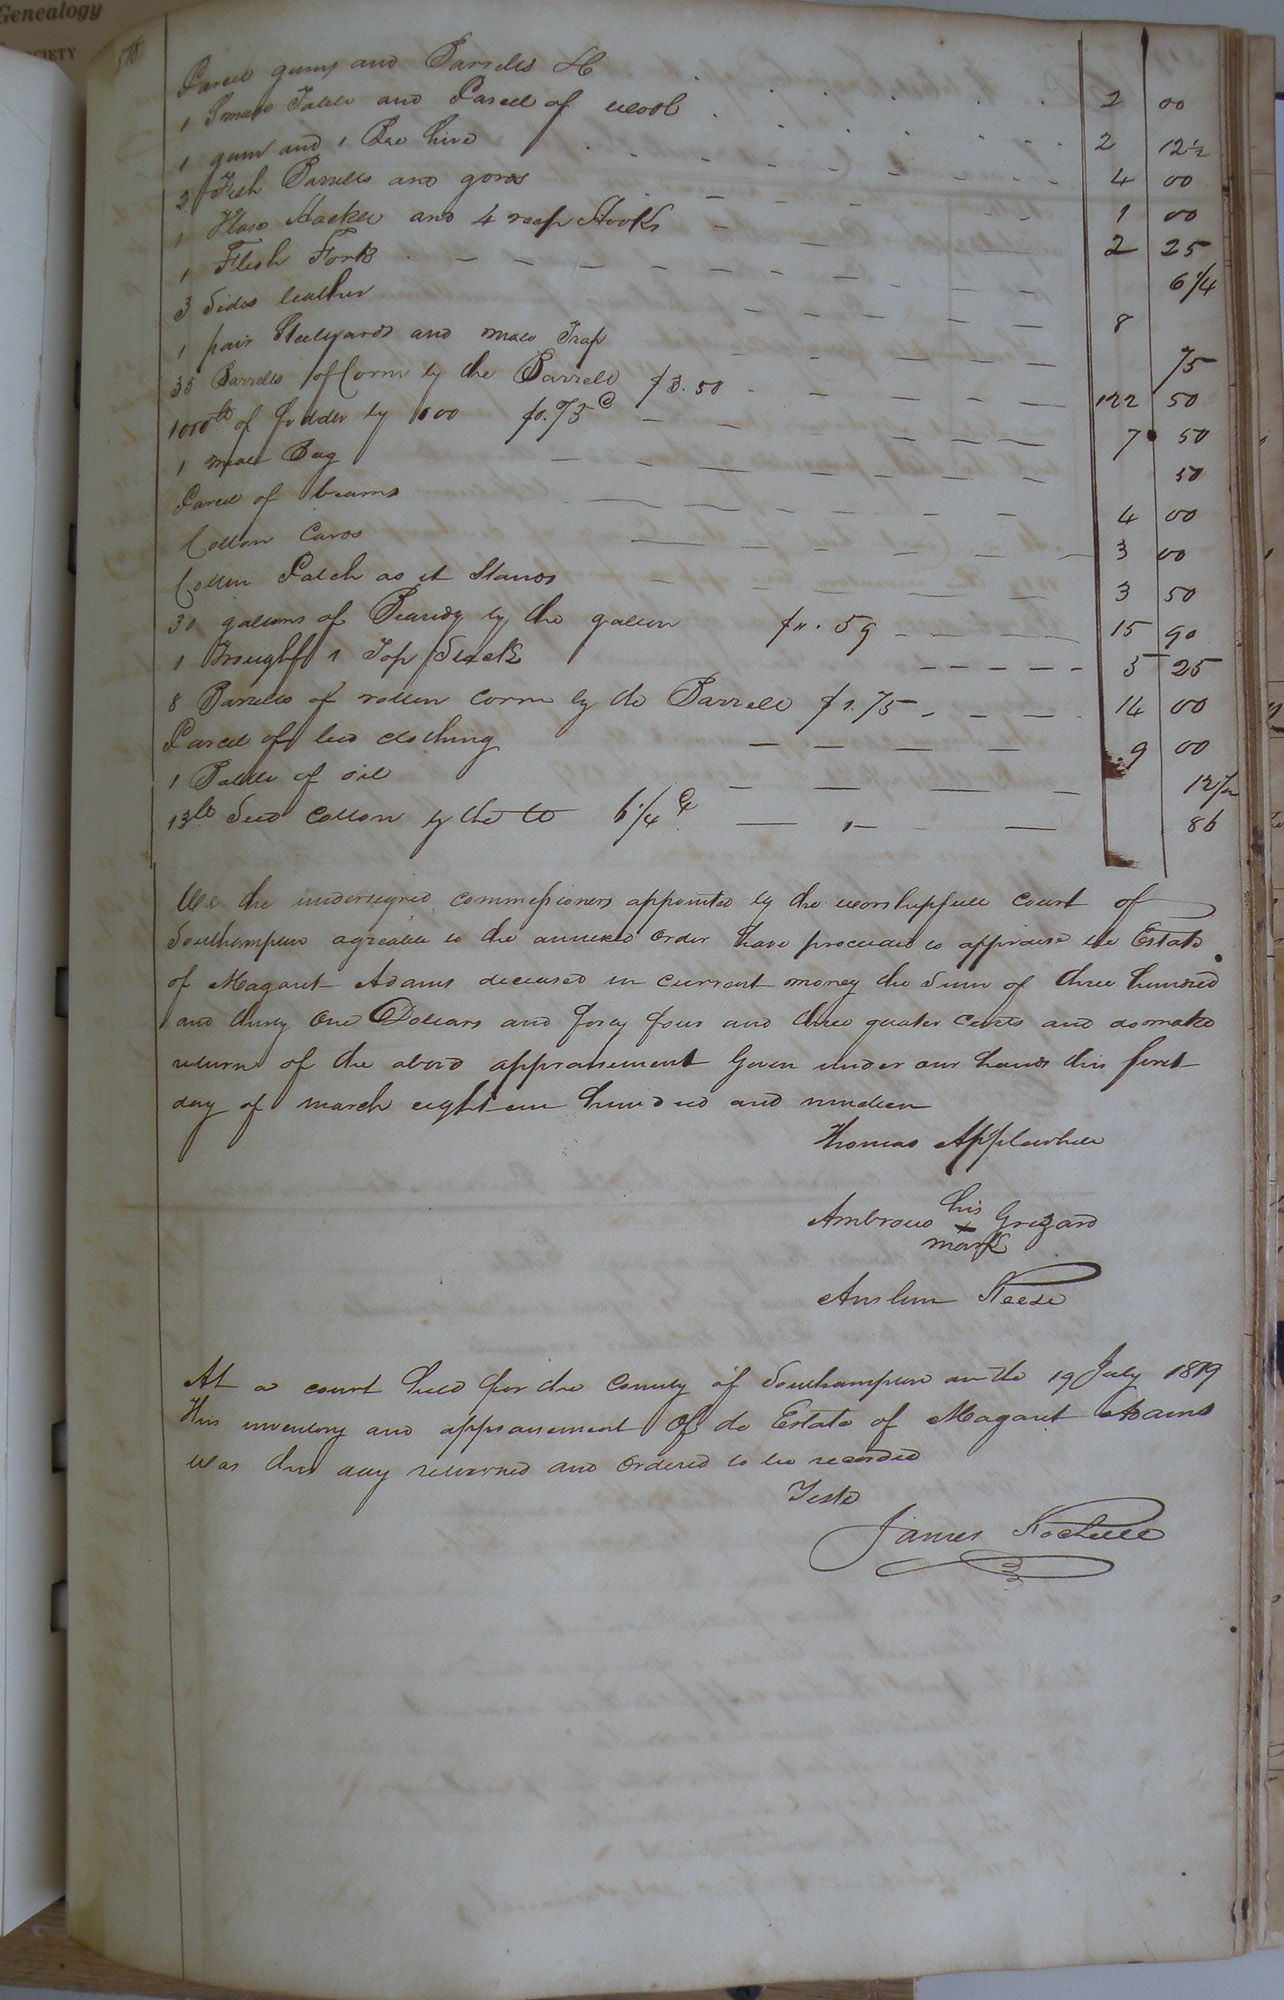 Genealogy
CIETY
518
Parcel gums and Barrels &c 2 00
1 Small Table and Parcel of wool 2 12 1/2
1 gum and 1 Bee hive 4 00
3 Fish Barrels and gords 1 00
1 Flax Hackle and 4 reap Hooks 2 25
1 Flesh Fork 6 1/4
3 Sides leather 8
1 pair Steelyards and Trap 75
35 Barrels of Corn by the Barrell $3.50 122 50
1000lb of fodder by 100 $0.75 c 7 50
1 meal Bag 50
Parcel of beans 4 00
Cotton Cards 3 00
Cotton Patch as it Stands 3 50
30 gallons of Brandy by the gallon 59 15 90
1 Trough 1 Top Stack 5 25
8 Barrells of rotten corn by the Barrell $1.75 14 00
Parcel of bed clothing 9 00
1 Bottle of oil 12 1/2
13lb Seed Cotton by the lb 6 1/4 c 86
We the undersigned commissioners appointed by the worshipfull Court of
Southampton agreable to the annexed order have proceeded to appraise the Estate
of Magaret Adams deceased in current money the Sum of three hundred
and thirty One Dollars and forty four and three quater Cents and do make
return of the above appraisement Given under our hands this first
day of march eighteen hundred and nineteen
Thomas Applewhite
his
Ambrous x Grizard
mark
Anslem Reese
At a court held for the County of Southampton on the 19 July 1819
This inventory and appraisement Of the Estate of Magaret Adams
was this day returned and ordered to be recorded
Teste
James Rochelle